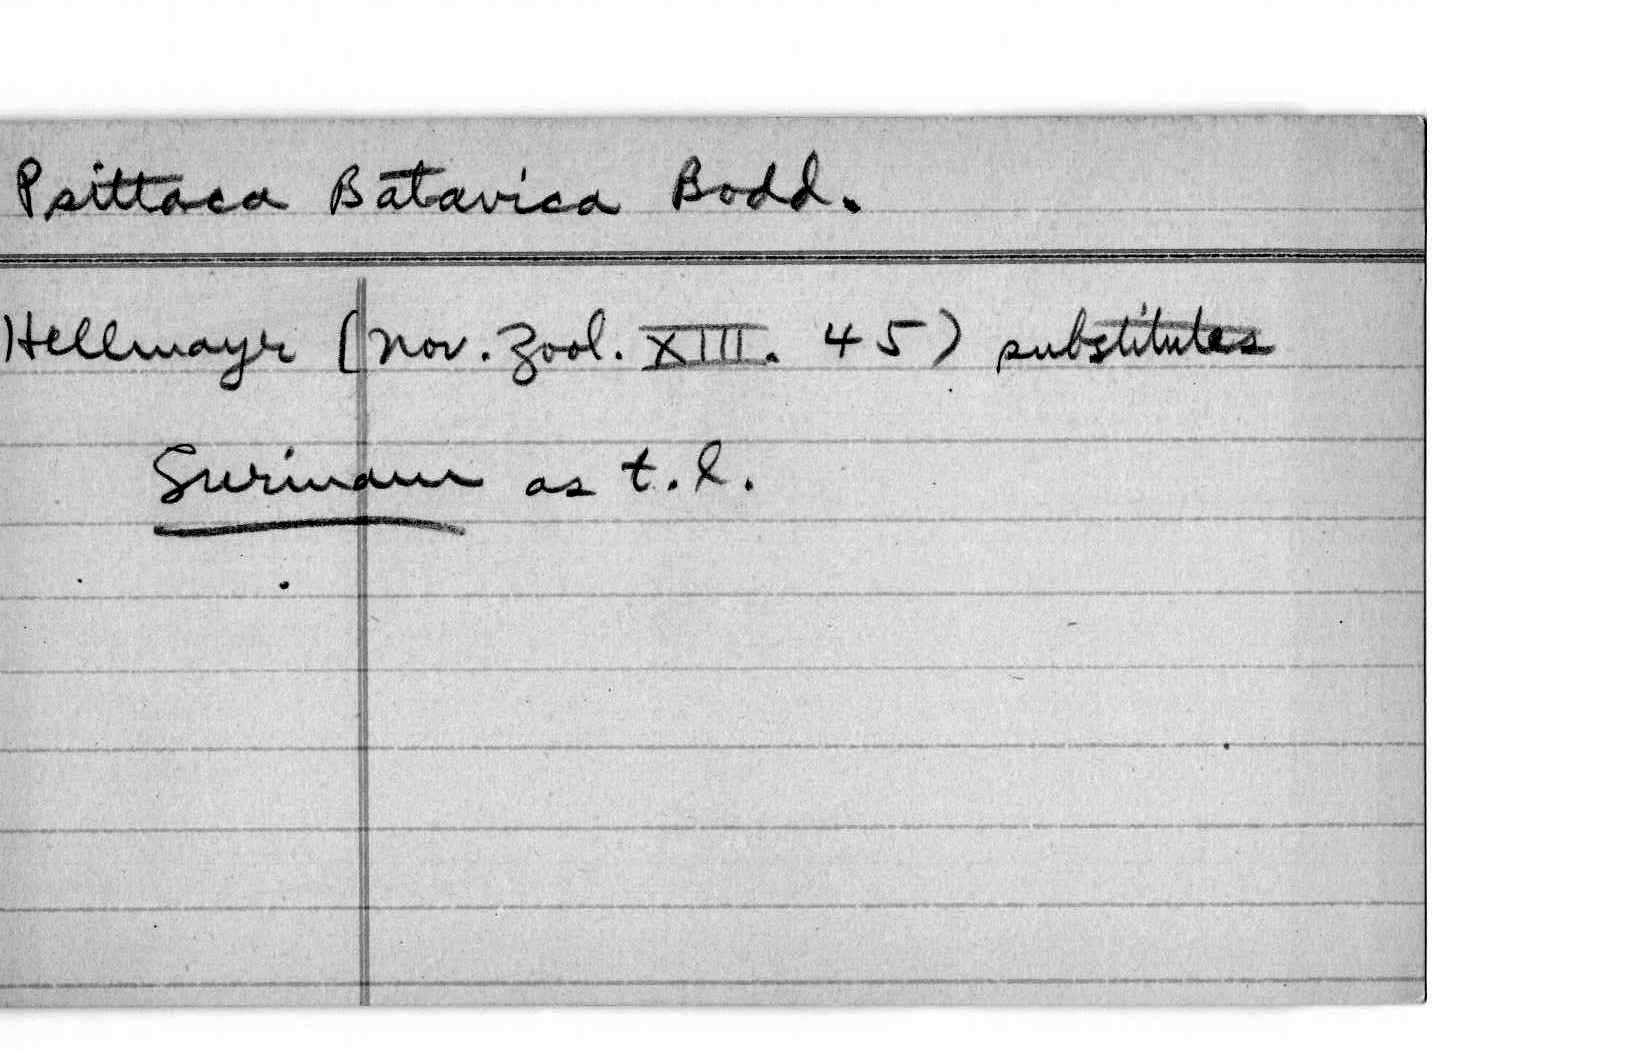 Psittaca Batavica Bodd.
Hellmayr (Nov. Zool. XIII. 45) substitutes
Surinam as t.l.